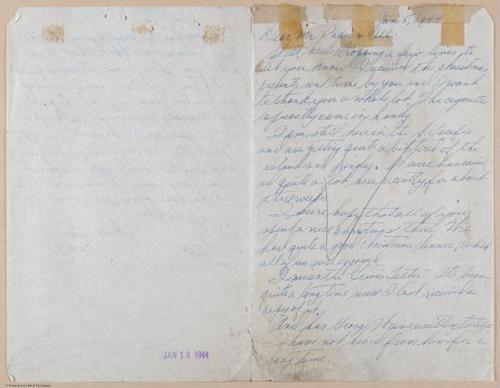 Jan 5, 1944
Dear Mr. &
Still here dropping a few lines to
let you know I received the christmas
presents sent to me by you and I want
to thank you a whole lot. The cigarettes
especially came in handy.
I am still here in the S. Pacific
and am getting quite a bit out of the
island and jungle. It sure has rained
quite a lot here recently for about
three weeks.
I sure hope that all of you
spent a nice christmas there. We
had quite a good christmas dinner, which
all of us sure enjoyed.
I miss the "News Letter". It's been
quite a long time since I last received a
copy of it.
has George written to
I have not heard from him for a
long time.
JAN 18 1944